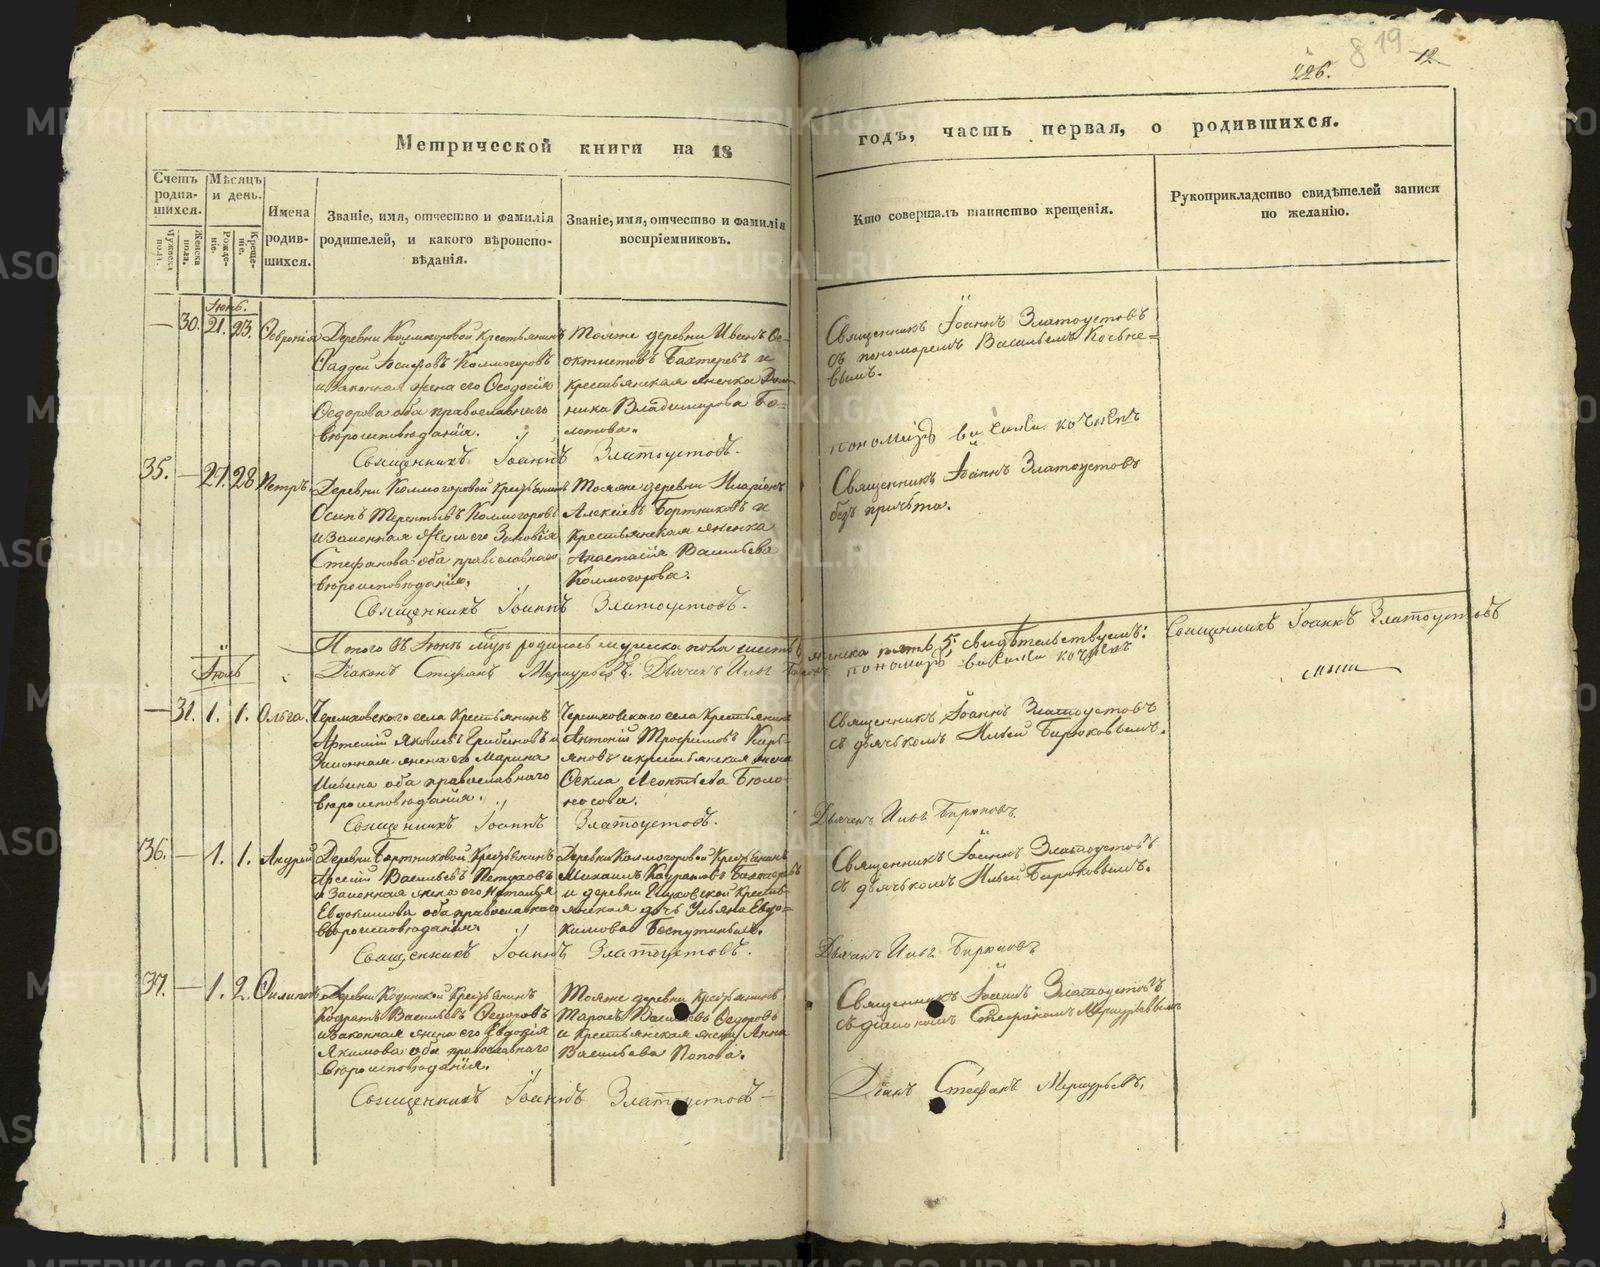 226.
819
12
Метрической книги на 18
годъ, часть первая, о родившихся.
Счетъ родив-шихся.
Мѣсяцъ и день.
Мужеска пола.
Женска пола.
Рожде-нія.
Креще-нія.
Имена родив-шихся.
Званіе, имя, отчество и фамилія
родителей, и какого вѣроиспо-
вѣданія.
Званіе, имя, отчество и фамилія
воспріемниковъ.
Кто совершалъ таинство крещенія.
Рукоприкладство свидѣтелей записи
по желанію.
Іюнь.
— 30. 21. 23. Февронія
Деревни Колмогоровой Крестьянинъ
Фаддей Іосифовъ Колмогоровъ
и законная жена его Феодосія
Федорова оба православнаго
вѣроисповѣданія.
Тояже деревни Иванъ Фе-
октистовъ Бахтеревъ и
крестьянская женка Дом-
ника Владимирова Бо-
лотова.
Священникъ Іоаннъ Златоустовъ
съ пономаремъ Васильемъ
вымъ.
Священникъ Іоаннъ Златоустовъ.
35. — 27. 28 Петръ.
Деревни Колмогоровой Крестьянинъ
Осипъ Терентьевъ Колмогоровъ
и Законная Жена его Зиновія
Стефанова оба православнаго
вѣроисповѣданія.
Тояже деревни Иларіонъ
Алексіевъ Бортниковъ и
Крестьянская женка
Анастасія Васильева
Колмогорова.
Священникъ Іоаннъ Златоустовъ
безъ причта.
Священникъ Іоаннъ Златоустовъ.
Итого въ Іюнѣ родилось мужеска пола шесть женска пять 5: свидѣтельствуемъ: Священникъ Іоаннъ Златоустовъ
Діаконъ Стефанъ Меркурьевъ. Дьячекъ Илья
Іюль
— 31. 1. 1. Ольга.
Черемховскаго села Крестьянинъ
Артемій Яковлевъ и
Законная жена его Марина
Ильина оба православнаго
вѣроисповѣданія.
Черемховскаго села Крестьянинъ
Антоній Трофимовъ Кирь-
яновъ и крестьянская жена
Фекла Леонтьева Бѣло-
носова.
Священникъ Іоаннъ Златоустовъ
съ дьячькомъ Ильей Бирюковымъ.
Священникъ Іоаннъ Златоустовъ.
Дьячекъ Илья Бирюковъ.
36. — 1. 1. Андрей
Деревни Бортниковой Крестьянинъ
Арсеній Васильевъ Петуховъ
и Законная жена его Наталья
Евдокимова оба православнаго
вѣроисповѣданія.
Деревни Колмогоровой Крестьянинъ
Михаилъ
и деревни Крестья-
янская дочь Ульяна Евдо-
кимова
Священникъ Іоаннъ Златоустовъ
съ дьячькомъ Ильей Бирюковымъ.
Священникъ Іоаннъ Златоустовъ.
Дьячекъ Илья Бирюковъ
37. — 1. 2. Филиппъ
Деревни Кодинской Крестьянинъ
Кодратъ Васильевъ Федоровъ
и законная жена его Евдокія
Якимова оба православнаго
вѣроисповѣданія.
Тояже деревни Крестьянинъ
Тарасъ Васильевъ Федоровъ
и крестьянская жена Анна
Васильева Попова.
Священникъ Іоаннъ Златоустовъ
съ діакономъ Стефаномъ Меркурьевымъ
Священникъ Іоаннъ Златоустовъ
Діаконъ Стефанъ Меркурьевъ.
METRIKI.GASO-URAL.RU